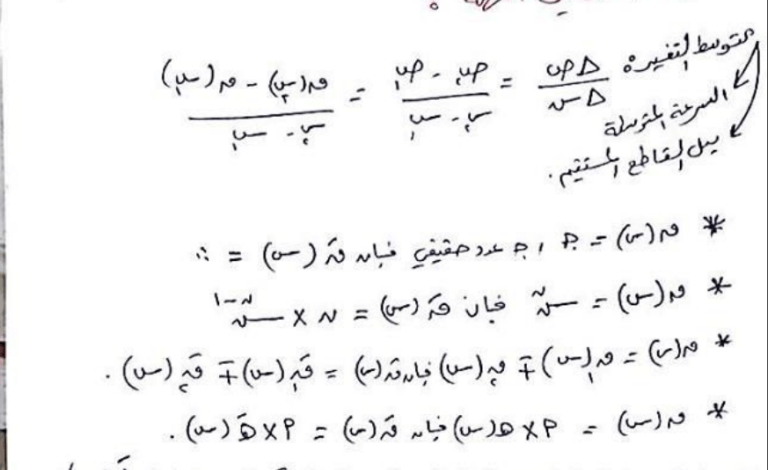 متوسط التغير = Δص / Δس = (ص₂ - ص₁) / (س₂ - س₁) = (ق(س₂) - ق(س₁)) / (س₂ - س₁)
السرعة المتوسطة
ميل القاطع المستقيم.
* ق(س) = جـ ، جـ عدد حقيقي فإن قَ(س) = ٠
* ق(س) = سⁿ فإن قَ(س) = ن × سⁿ⁻¹
* ق(س) = ق₁(س) ∓ ق₂(س) فإن قَ(س) = قَ₁(س) ∓ قَ₂(س).
* ق(س) = م × هـ(س) فإن قَ(س) = م × هـَ(س).